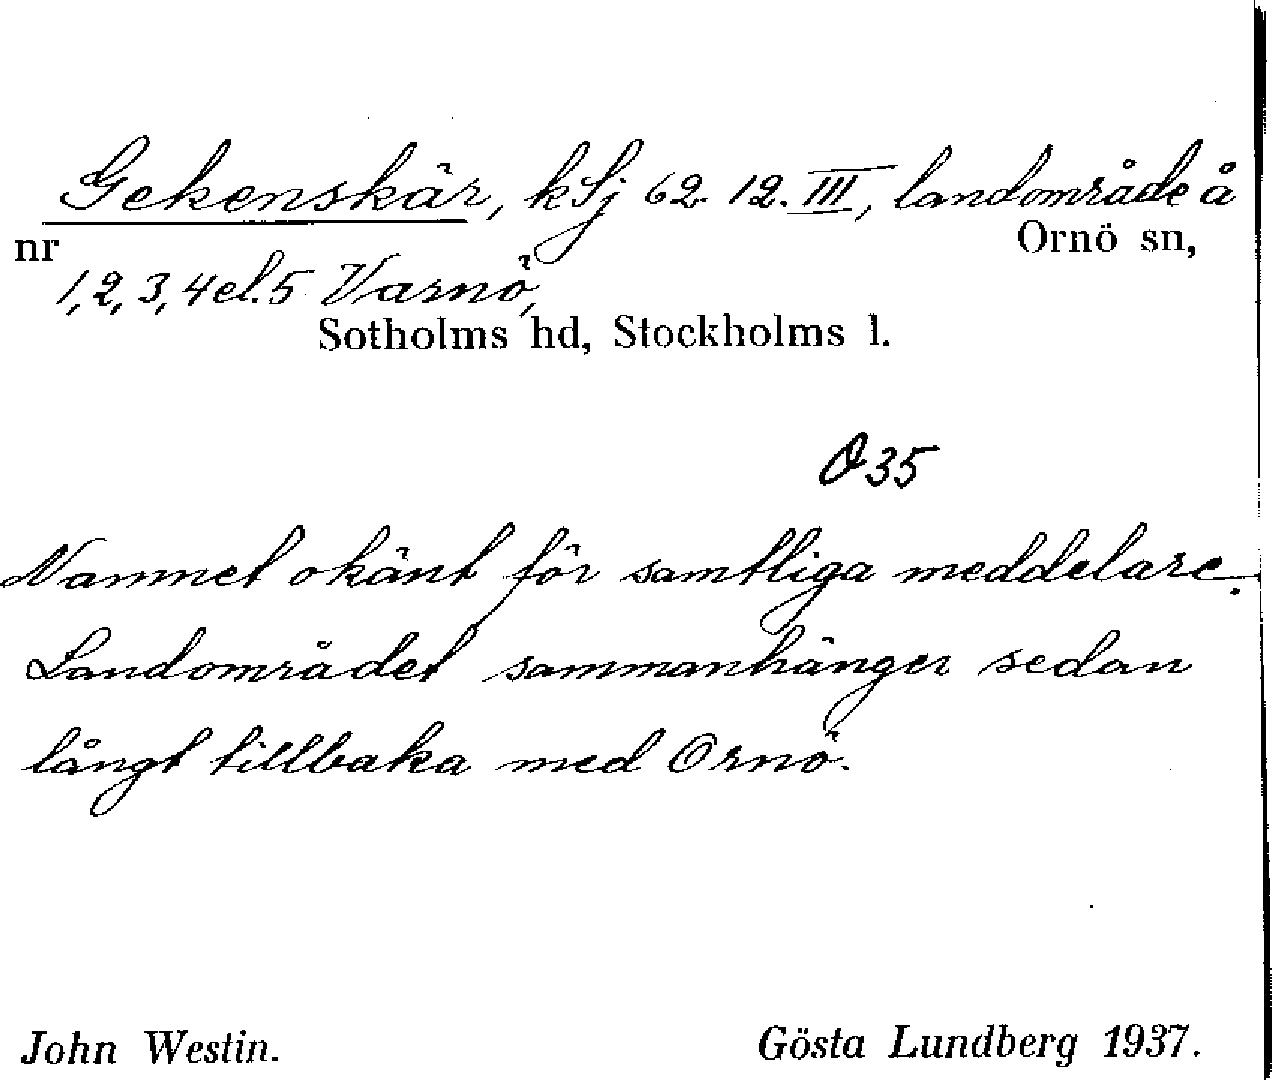 Gekenskär, kSj 62. 12. III, landområde å
nr Ornö sn,
1, 2, 3, 4 el. 5 Varnö,
Sotholms hd, Stockholms l.
O 35
Namnet okänt för samtliga meddelare.
Landområdet sammanhänger sedan
långt tillbaka med Ornö.
John Westin. Gösta Lundberg 1937.